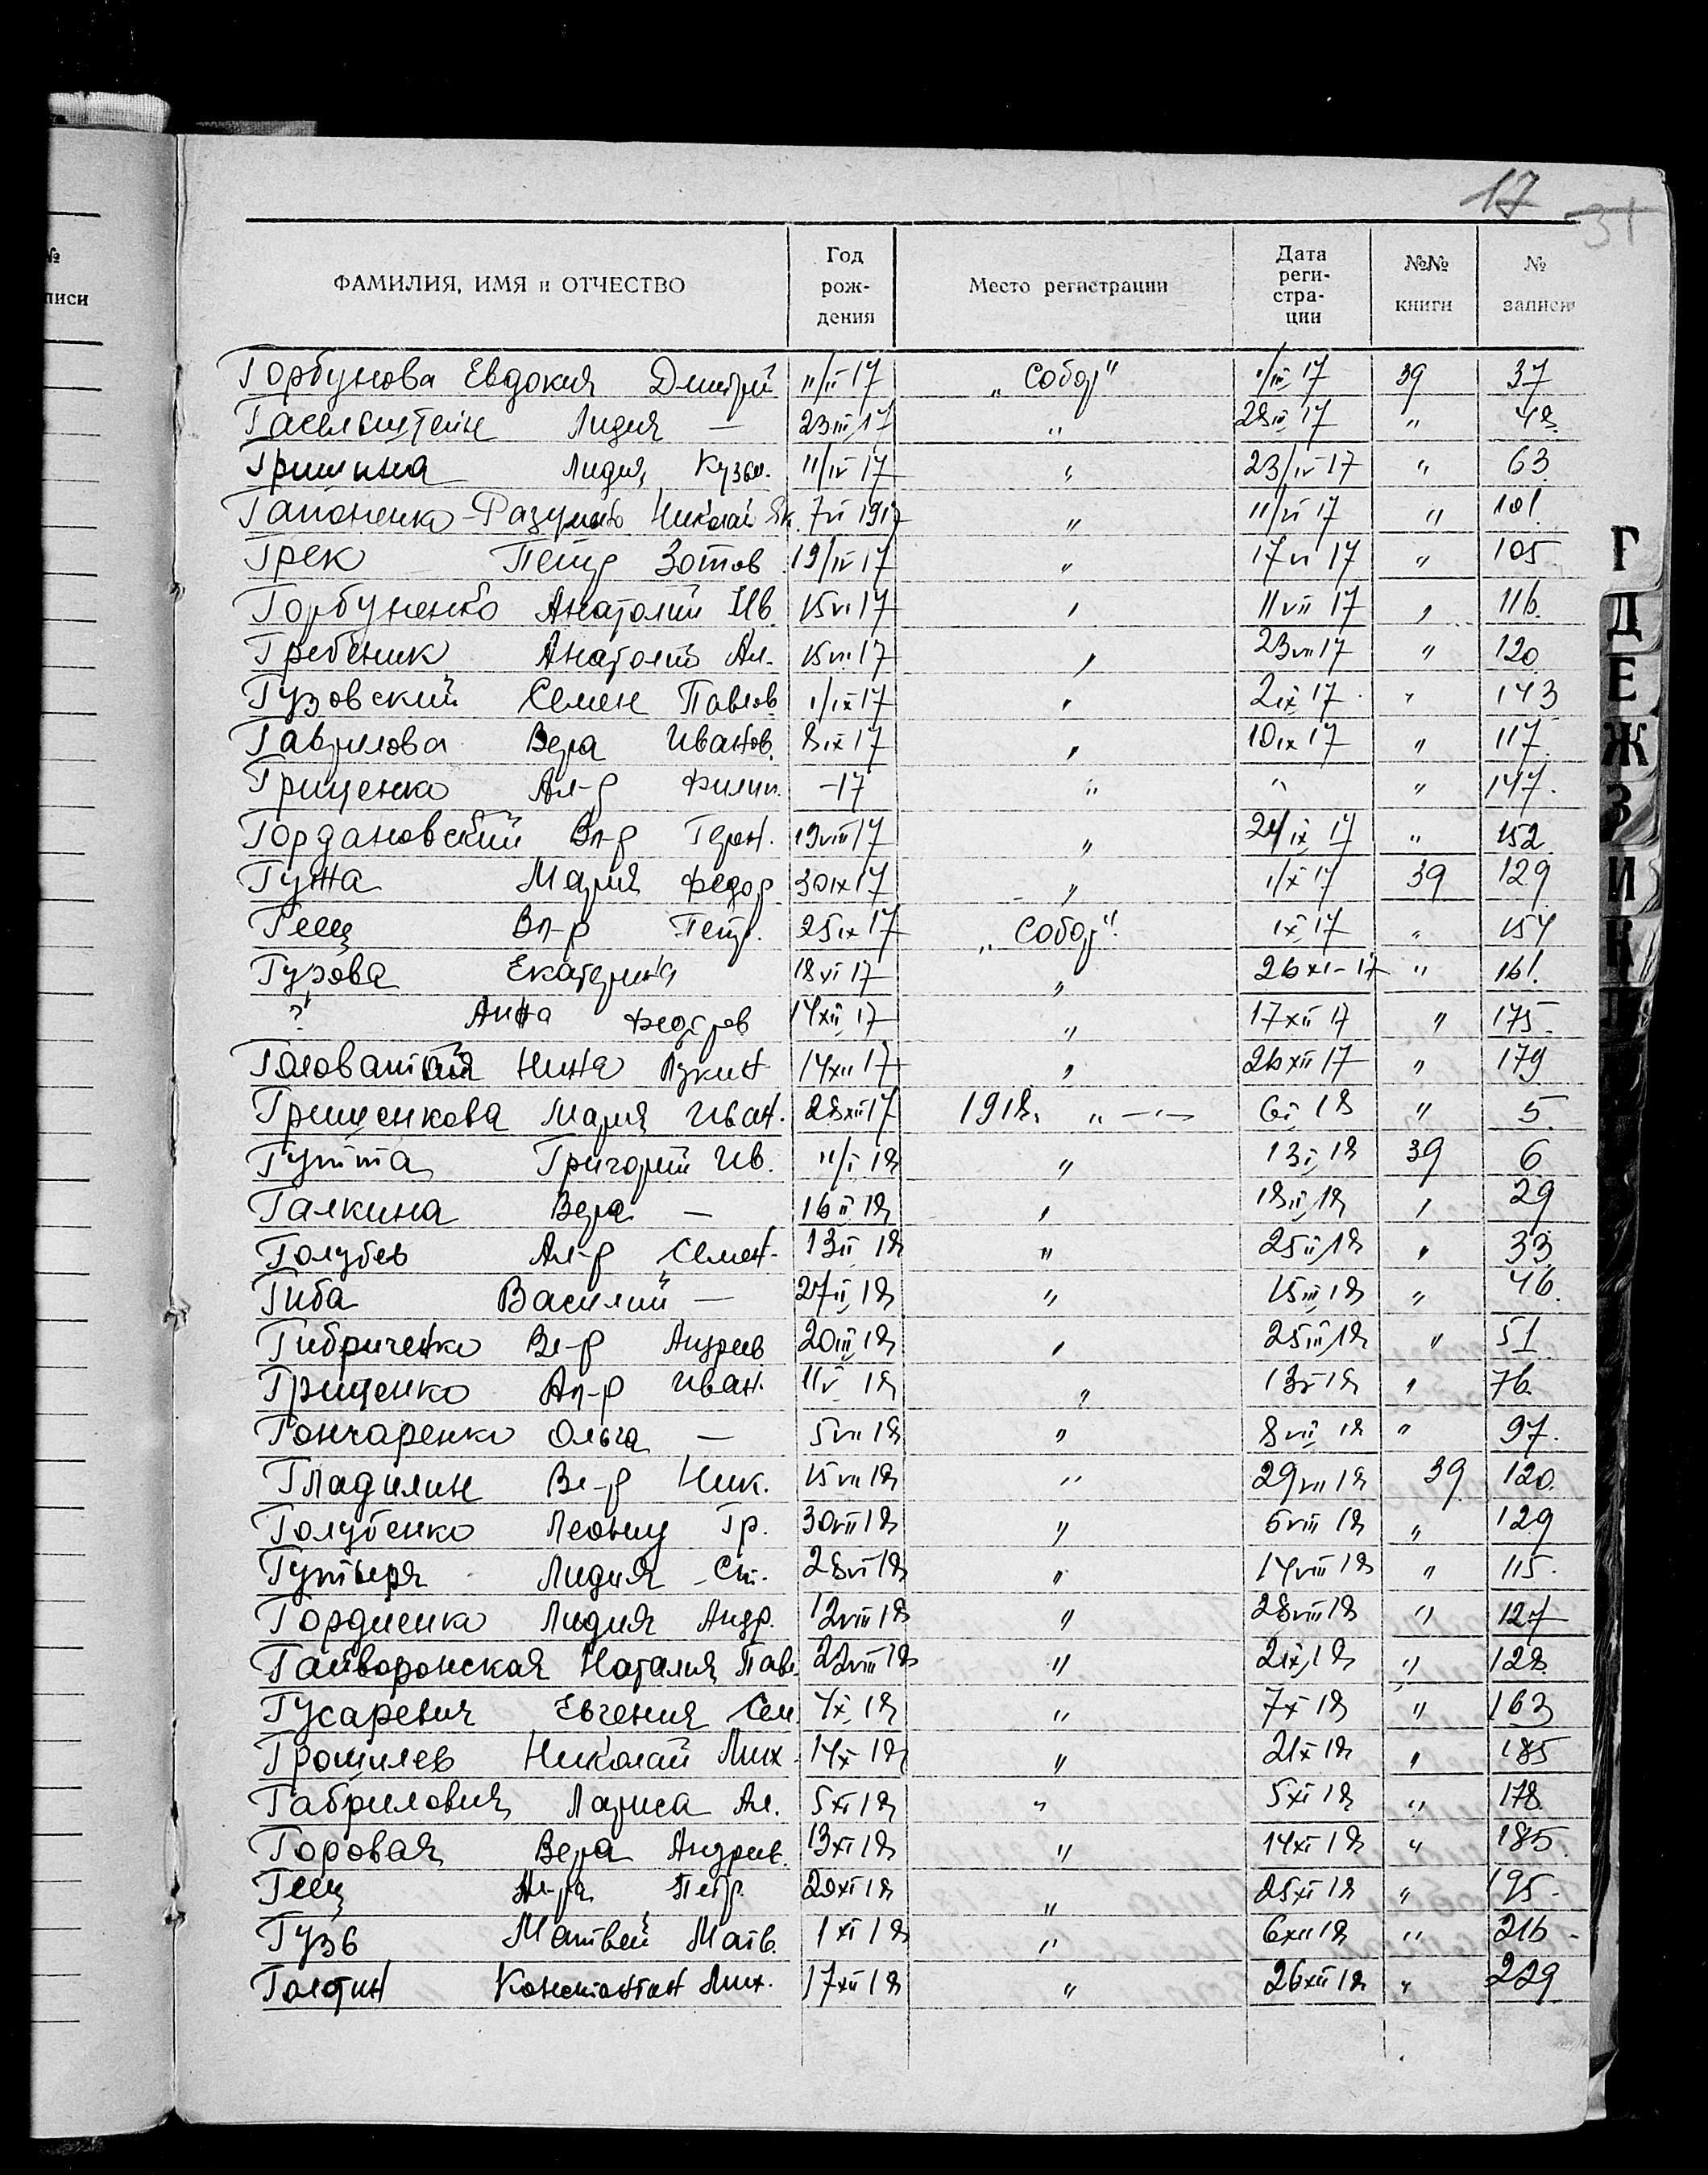 17
31
№
писи
ФАМИЛИЯ, ИМЯ и ОТЧЕСТВО Год рождения Место регистрации Дата регистрации №№ книги № записи
Горбунова Евдокия Дмитрий 11/II 17 „Собор" 1/III 17 39 37
Лидия — 23 III 17 " 28 III 17 " 48
Гришина Лидия Кузьм. 11/IV 17 " 23/IV 17 " 63
Гапоненко-Разумно Николай Як. 7 VI 1917 " 11/VI 17 " 101.
Грек Петр Зотов 19/IV 17 " 17 VI 17 " 105
Горбуненко Анатолий Ив. 15 VI 17 " 11 VII 17 " 116.
Гребеник Анатолий Ал. 15 VII 17 " 23 VII 17 " 120
Гузовский Семен Павлов 1/IX 17 " 2 IX 17 " 143
Гаврилова Вера Иванов. 8 IX 17 " 10 IX 17 " 117
Грищенко Ал-р Филип. -17 " " " 147.
Гордановский Вл-р Герон. 19 VIII 17 " 24/IX 17 " 152
Гужа Мария Федор 30 IX 17 " 1/X 17 39 129
Гещ Вл-р Петр. 25 IX 17 „Собор" 1 X 17 " 154
Гузова Екатерина 18 XI 17 " 26 XI-17 " 161.
? Анна Федоров 14 XII 17 " 17 XII 17 " 175.
Головатая Нина Лукин 14 XII 17 " 26 XII 17 " 179
Грищенкова Мария Иван. 28 XII 17 1918г. " —"— 6 I 18 " 5
Гутта Григорий Ив. 11/I 18 " 13 I 18 39 6
Галкина Вера — 16 II 18 " 18 II 18 " 29
Голубев Ал-р Семен. 13 II 18 " 25 II 18 " 33
Гиба Василий — 27 II 18 " 15 III 18 " 46.
Гибриченко Вл-р Андреев 20 III 18 " 25 III 18 " 51
Грищенко Ал-р Иван. 11 V 18 " 13 V 18 " 76.
Гончаренко Ольга — 5 VII 18 " 8 VII 18 " 97.
Гладилин Вл-р Ник. 15 VII 18 " 29 VII 18 39 120.
Голубенко Леонид Гр. 30 VII 18 " 6 VIII 18 " 129
Гутыря Лидия Ст. 28 VI 18 " 14 VIII 18 " 115.
Гордиенко Лидия Андр. 12 VIII 18 " 28 VIII 18 " 127
Гайворонская Наталия Павл. 22 VIII 18 " 2 IX 18 " 128.
Гусаревич Евгения Сем. 4 X 18 " 7 X 18 " 163
Громилев Николай Мих. 14 X 18 " 21 X 18 " 185
Габрилович Лариса Ал. 5 XI 18 " 5 XI 18 " 178.
Горовая Вера Андреев. 13 XI 18 " 14 XI 18 " 185.
Гещ Ал-ра Петр. 20 XI 18 " 25 XI 18 " 195.
Гузь Матвей Матв. 1 XI 18 " 6 XII 18 " 216
Голтин Константин Мих. 17 XII 18 " 26 XII 18 " 229
Г
Д
Е
Ж
З
И
К
Л